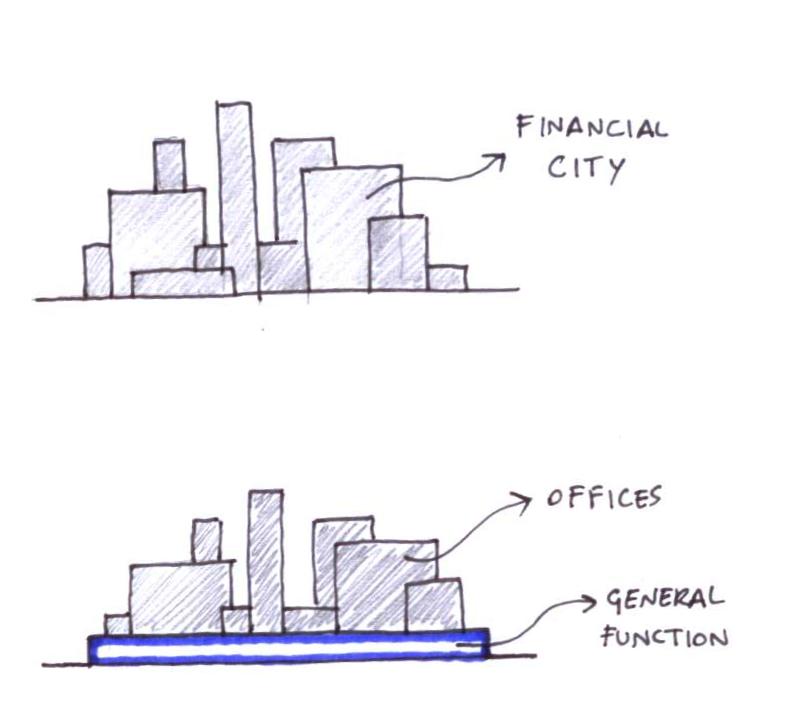 FINANCIAL
CITY
OFFICES
GENERAL
FUNCTION